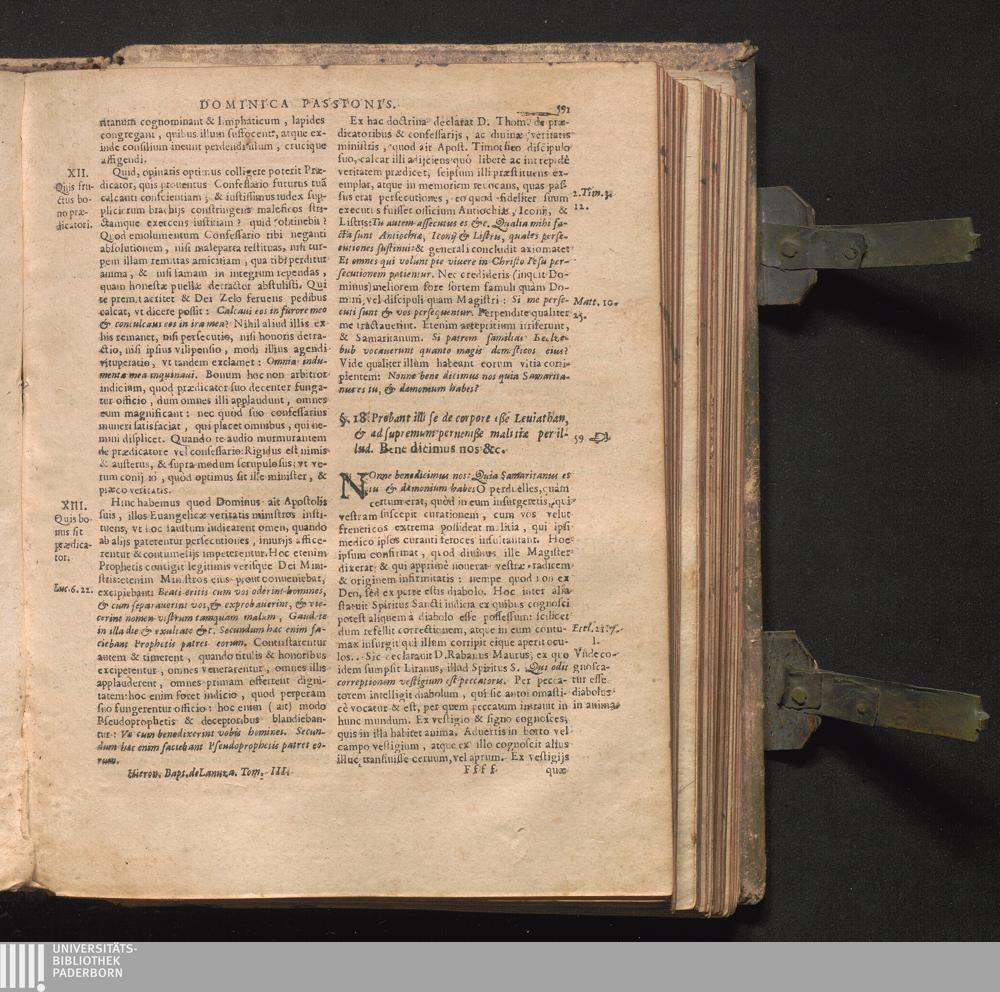 DOMINICA PASSIONIS.
591
ritanum cognominant & Lymphaticum, lapides
congregant, quibus illum suffocent, atque ex-
inde consilium ineunt perdendi illum, crucique
affigendi.
XII.
Quis fru-
ctus bo-
no præ-
dicatori.
Quid, opinaris optimus colligere poterit Præ-
dicator, quis prouentus Confessario futurus tuā
calcanti conscientiam; & iustissimus iudex sup-
pliciorum brachijs constringens maleficos stri-
ctamque exercens iustitiam? quid obtinebit?
Quod emolumentum Confessario tibi neganti
absolutionem, nisi maleparta restituas, nisi tur-
pem illam remittas amicitiam, qua tibi perditur
anima, & nisi famam in integrum rependas,
quam honestæ puellæ detractor abstulisti. Qui
te premit acriter & Dei Zelo feruens pedibus
calcat, vt dicere possit: Calcaui eos in furore meo
& conculcaui eos in ira mea? Nihil aliud illis ex
his remanet, nisi persecutio, nisi honoris detra-
ctio, nisi ipsius vilipensio, modi illius agendi
vituperatio, vt tandem exclamet: Omnia indu-
menta mea inquinaui. Bonum hoc non arbitror
indicium, quod prædicator suo decenter funga-
tur officio, dum omnes illi applaudunt, omnes
eum magnificant: nec quod suo confessarius
muneri satisfaciat, qui placet omnibus, qui ne-
mini displicet. Quando te audio murmurantem
de prædicatore vel confessario: Rigidus est nimis
& austerus, & supra modum scrupulosus: vt ve-
rum conijcio, quòd optimus sit ille minister, &
præco veritatis.
XIII.
Quis bo-
nus sit
prædica-
tor.
Hinc habemus quod Dominus ait Apostolis
suis, illos Euangelicæ veritatis ministros insti-
tuens, vt hoc faustum indicarent omen, quando
ab alijs paterentur persecutiones, iniurijs affice-
rentur & contumelijs impeterentur. Hoc etenim
Prophetis contigit legitimis verisque Dei Mini-
stris: etenim Ministros eius prout conueniebat,
Luc. 6. 22.
excipiebant: Beati eritis cum vos oderint homines,
& cum separauerint vos, & exprobauerint, & eie-
cerint nomen vestrum tamquam malum, Gaudete
in illa die & exultate &c. Secundum hæc enim fa-
ciebant Prophetis patres eorum. Contristarentur
autem & timerent, quando titulis & honoribus
exciperentur, omnes venerarentur, omnes illis
applauderent, omnes primam offerrent digni-
tatem: hoc enim foret indicio, quod perperam
suo fungerentur officio: hoc enim (ait) modo
Pseudoprophetis & deceptoribus blandieban-
tur: Væ cum benedixerint vobis homines. Secun-
dum hæc enim faciebant Pseudoprophetis patres eo-
rum.
Hieron. Bapt. de Lanuza. Tom. III.
Ex hac doctrina declarat D. Thom. de præ-
dicatoribus & confessarijs, ac diuinæ veritatis
ministris, quod ait Apost. Timotheo discipulo
suo, calcar illi adijciens quò liberè ac intrepidè
veritatem prædicet, seipsum illi præstituens ex-
emplar, atque in memoriam reuocans, quas pas-
sus erat persecutiones, eo quod fideliter suum
2. Tim. 3.
12.
executus fuisset officium Antiochiæ, Iconij, &
Listris: Tu autem assecutus es &c. Qualia mihi fa-
cta sunt Antiochiæ, Iconij & Listris, quales perse-
cutiones sustinui: & generali concludit axiomate:
Et omnes qui volunt pie viuere in Christo Iesu per-
secutionem patientur. Nec credideris (inquit Do-
minus) meliorem fore sortem famuli quàm Do-
mini, vel discipuli quam Magistri: Si me perse-
Matt. 10.
25.
cuti sunt & vos persequentur. Perpendite qualiter
me tractauerint. Etenim arreptitium irriserunt,
& Samaritanum. Si patrem familias Beelze-
bub vocauerunt quanto magis domesticos eius?
Vide qualiter illum habeant eorum vitia corri-
pientem: Nonne bene dicimus nos quia Samarita-
nus es tu, & dæmonium habes?
§. 18. Probant illi se de corpore esse Leuiathan,
& ad supremum peruenisse malitiæ per il-
lud. Bene dicimus nos &c.
59
NOnne bene dicimus nos: Quia Samaritanus es
tu & dæmonium habes? O perduelles, quàm
certum erat, quòd in eum insurgeretis, qui
vestram suscepit curationem, cum vos velut
freneticos extrema possideat malitia, qui ipsi
medico ipsos curanti feroces insultantant. Hoc
ipsum confirmat, quod diuinus ille Magister
dixerat; & qui apprimè nouerat vestræ radicem
& originem infirmitatis: nempe quod non ex
Deo, sed ex patre estis diabolo. Hoc inter alia
statuit Spiritus Sancti indicia ex quibus cognosci
potest aliquem à diabolo esse possessum: scilicet
dum refellit correctionem, atque in eum contu-
max insurgit qui illum corripit eique aperit ocu-
Eccl. 21. 7.
Vnde co-
gnosca-
tur esse
diabolus
in anima.
los. Sic declarauit D. Rabanus Maurus, ex quo
idem sumpsit Liranus, illud Spiritus S. Qui odit
correptionem vestigium est peccatoris. Per pecca-
torem intelligit diabolum, qui sic antonomasti-
cè vocatur & est, per quem peccatum intrauit in
hunc mundum. Ex vestigio & signo cognosces,
quis in illa habitet anima. Aduertis in horto vel
campo vestigium, atque ex illo cognoscit alius
illuc transiuisse ceruum, vel aprum. Ex vestigijs
Ffff
quæ
UNIVERSITÄTS-
BIBLIOTHEK
PADERBORN